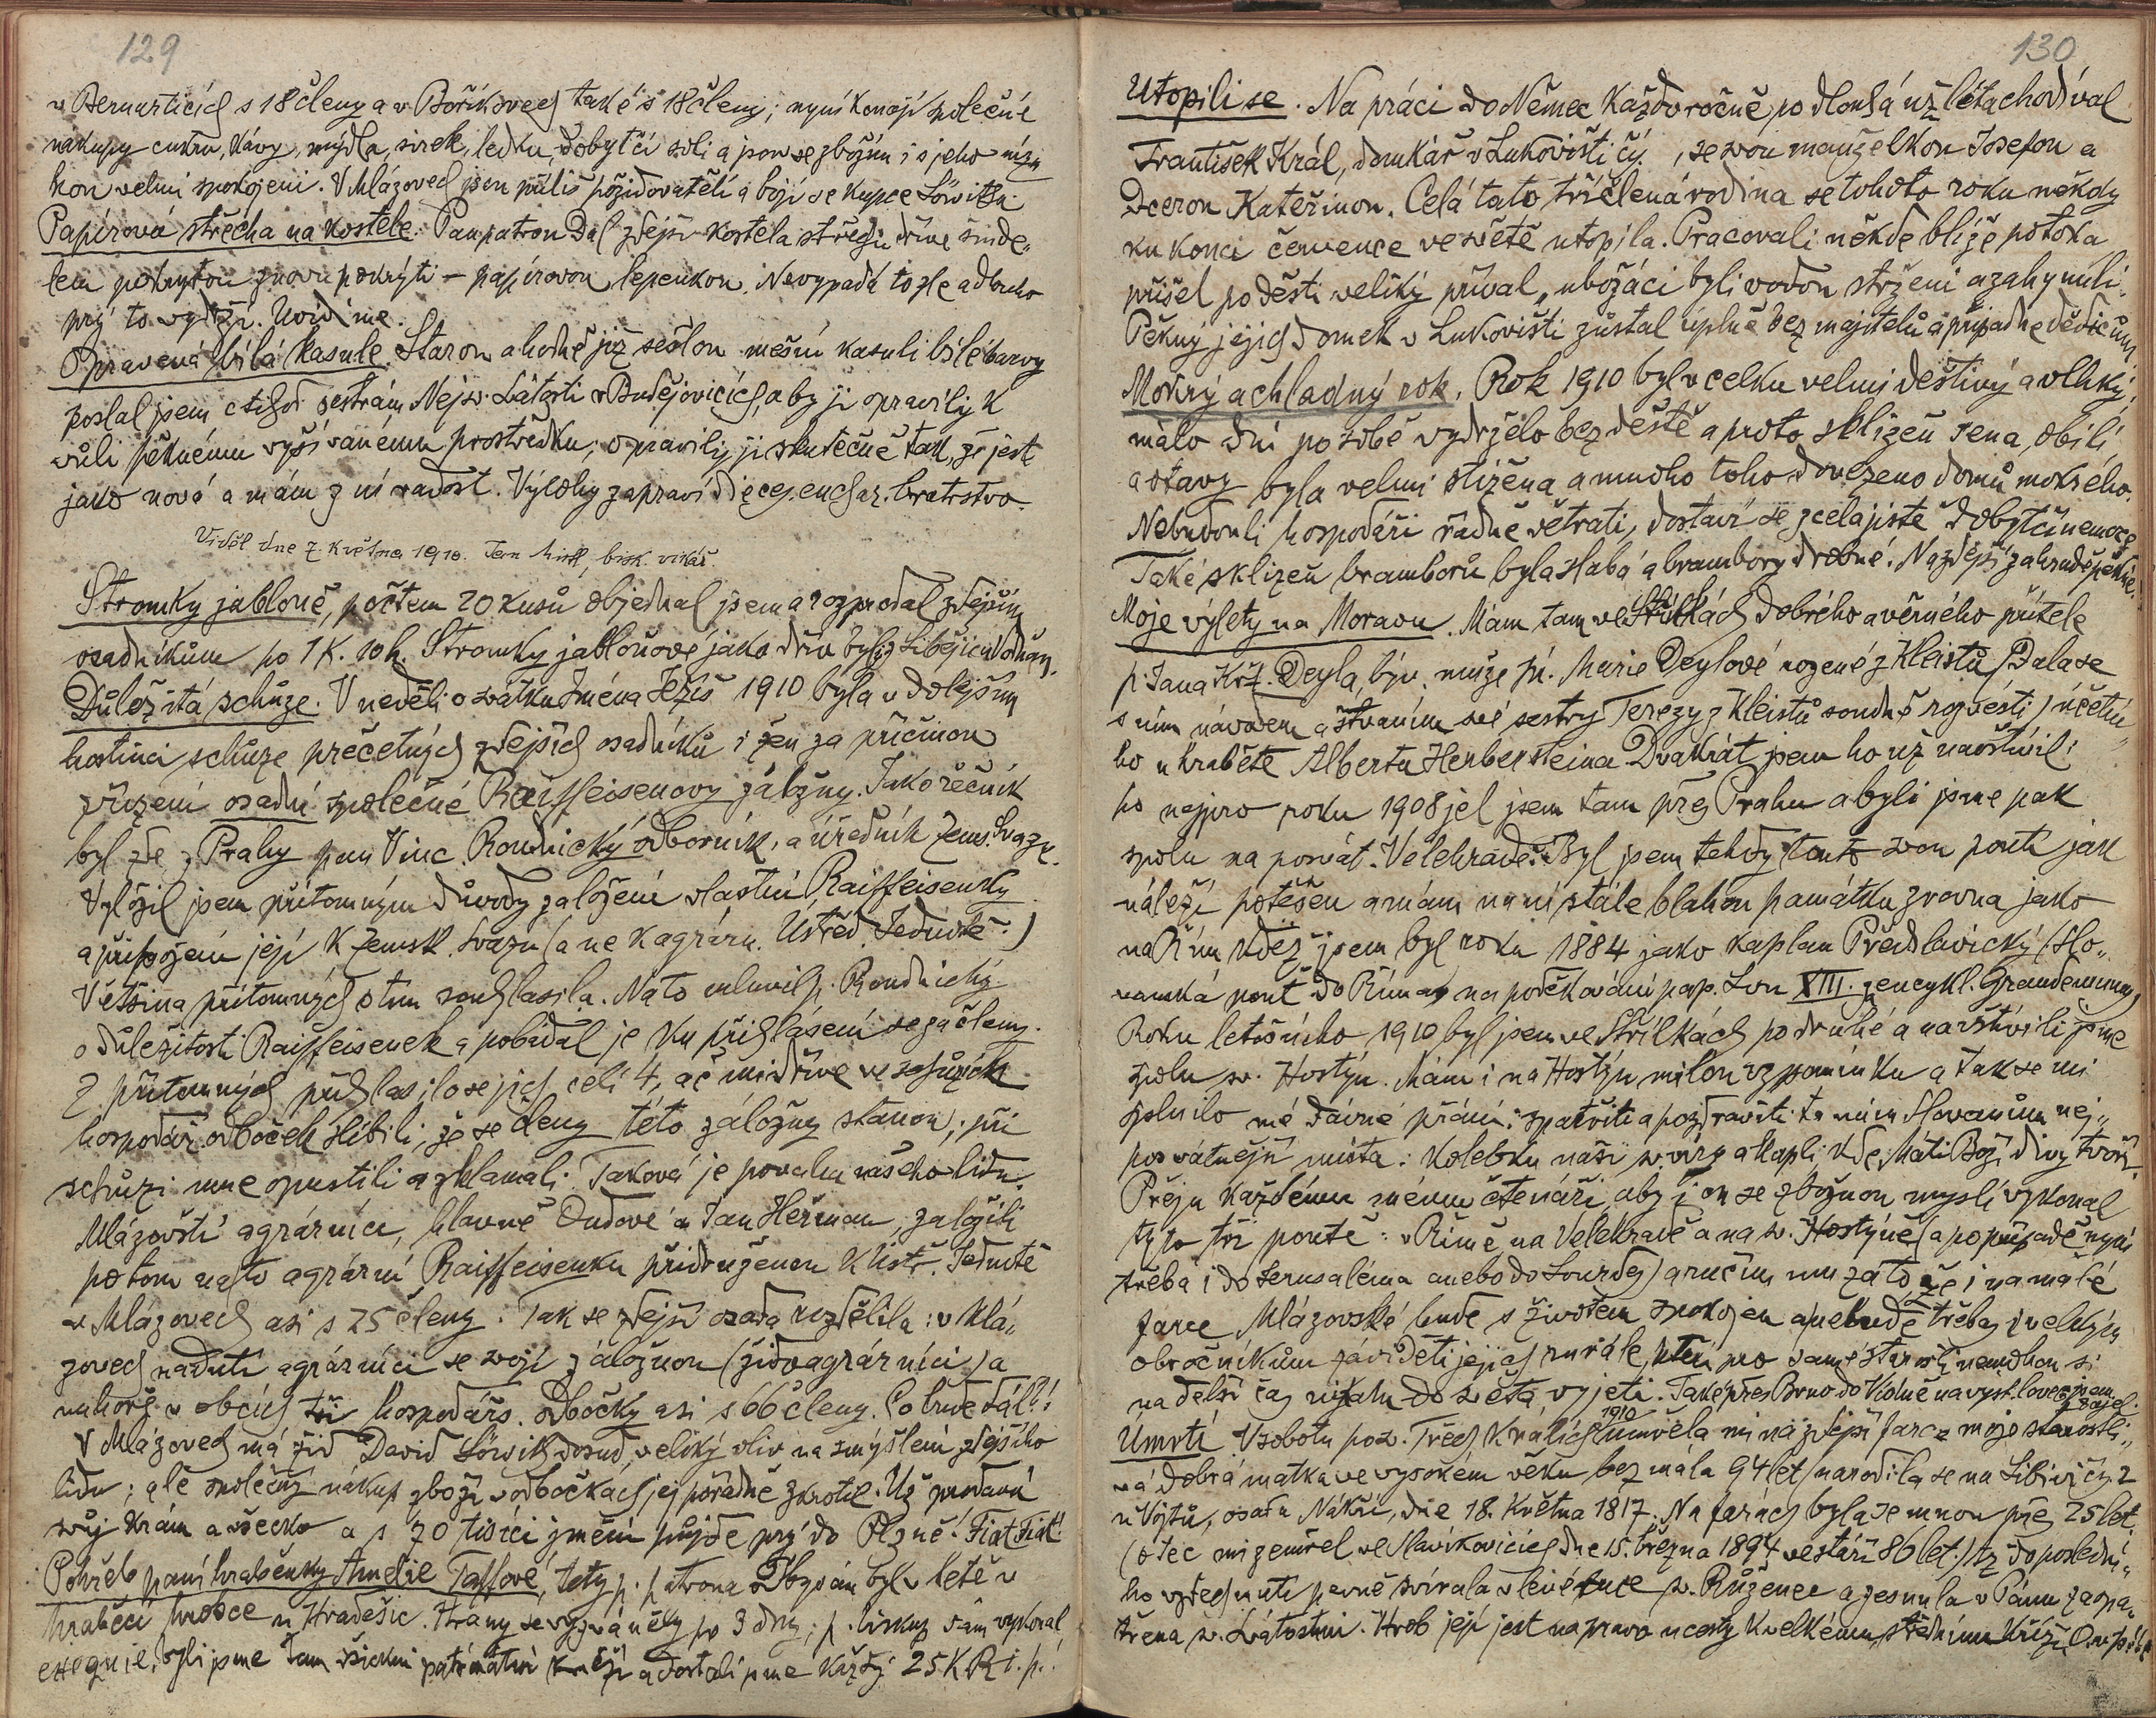 129
v Bernarticích s 18 členy a v Boříkovech také s 18 členy; nyní konají společné
nákupy cukru, kávy, mýdla, sirek, ledku, dobytčí soli a jsou se zbožím i s jeho
kou velmi spokojeni. V Mlázovech jsou příliš požidovatělí a bojí se kupce Löwitha.
Papírová střecha na kostele. Pan patron Dal zdejší kostela střechu dříve šinde„
lem pokrytou znovu pokrýti – papírovou lepenkou. Nevypadá to zle a dlouho
prý to vydrží. Uvidíme.
Opravená bílá kasule. Starou a hodně již sešlou mešní kasuli bílé barvy
poslal jsem ctihod. sestrám Nejsv. Svátosti v Budějovicích, aby ji opravily k
vůli pěknému vyšívanému prostředku; opravily ji skutečně tak, že jest
jako nová a mám z ní radost. Výlohy zapraví dieces. euchar. bratrstvo.
Viděl dne 7. května 1910. Jan bisk. vikář.
Stromky jabloně, počtem 20 kusů objednal jsem a rozprodal zdejším
osadníkům po 1 K. 10 h. Stromky jabloňové jako dřív byly z Libějic u Vodňan.
Důležitá schůze. V neděli o svátku Jména Ježíš 1910 byla v dolejším
hostinci schůze přečetných zdejších osadníků i žen za příčinou
zřízení osadní společné Raiffeisenovy záložny. Jako řečník
byl zde z Prahy pan Vinc. Roudnický odborník, a úředník Zems. Svazu.
Vyložil jsem přítomným důvody založení vlastní Raiffeisenky
a připojení její k Zemsk. Svazu (a ne k agrárn. Ústřed. Jednotě.)
Většina přítomných s tím souhlasila. Na to mluvil p. Roudnický
o důležitosti Raiffeisenek a pobídal je ku přihlášení se za členy.
Z přítomných přihlásilo se jich celí 4, ač mi dříve v schůzích
hospodář. odboček slíbili, že se členy této záložny stanou; při
schůzi mne opustili a zklamali. Taková je povaha našeho lidu.
Mlázovští agrárníci, hlavně Dudové a Jan Heřman, založili
potom na to agrární Raiffeisenku přidruženou k Ústř. Jednotě
v Mlázovech asi s 25 členy. Tak se zdejší osada rozdělila: v Mlá„
zovech nadutí agrárníci se svojí záložnou (židoagrárníci) a
nahoře v obcích tři hospodářs. odbočky asi s 66 členy. Co bude dál?!
V Mlázovech má žid David Löwith dosud veliký vliv na smýšlení zdejšího
lidu; ale společný nákup zboží v odbočkách jej pořádně zkrotil. Už prodává
svůj krám a všecko a s 70 tisíci jmění půjde prý do Plzně. Fiat Fiat!
Pohřeb paní hraběnky Amelie Taffové, tety p. patrona zdejš. byl v létě v
hraběcí hrobce u Hradešic. Hrany se vyzváněly po 3 dny; p. biskup sám vykonal
exequie, byli jsme tam všickni patronátní kněží a dostali jsme každý 25 K R. i. p.!
130
Utopili se. Na práci do Němec každoročně po dlouhá už léta chodíval
František Král, domkář v Lukovišti čp. , se svou manželkou Josefou a
Dcerou Kateřinou. Celá tato tříčlenná rodina se tohoto roku někdy
ku konci července ve světě utopila. Pracovali někde blíže potoka,
přišel po dešti veliký příval, ubožáci byli vodou strženi a zahynuli.
Pěkný jejich domek v Lukovišti zůstal úplně bez majitelů a připadne dědicům.
Mokrý a chladný rok. Rok 1910 byl v celku velmi deštivý a vlhký;
málo dní po sobě vydrželo bez deště a proto sklizeň sena, obilí
a otavy byla velmi stížena a mnoho toho dovezeno domů mokrého.
Nebudouli hospodáři řádně větrati, dostaví se zcela jistě dobytčí nemoce.
Také sklizeň bramborů byla slabá a brambory drobné. Na zdejší zahradě pěkné.
Moje výlety na Moravu. Mám tam ve Střílkách dobrého a věrného přítele
p. Jana Křt. Deyla, býv. muže pí. Marie Deylové rozené z Kleistů (Dala se
s ním návodem a štvaním své sestry Terezy z Kleistů soudně rozvésti) účetní„
ho u hraběte Alberta Herbersteina. Dvakrát jsem ho už navštívil:
po nejprv roku 1908 jel jsem tam přes Prahu a byli jsme pak
spolu na posvát. Velehradě. Byl jsem tehdy touto svou poutí jak
náleží potěšen a mám na ni stále blahou památku zrovna jako
na Řím kdež jsem byl roku 1884 jako kaplan Předslavický (Slo„
vanská pouť do Říma na poděkování pap. Lvu XIII. z encykl. Grande munus)
Roku letošního 1910 byl jsem ve Střílkách po druhé a navštívili jsme
spolu sv. Hostýn. Mám i na Hostýn milou vzpomínku a tak se mi
splnilo mé dávné přání: spatřiti a pozdraviti ta nám Slovanům nej„
posvátnější místa: kolébku naší sv. víry a kapli, kde Máti Boží divy tvoří.
Přeju každému mému čtenáři, aby jen se zbožnou myslí vykonal
tyto tři poutě: v Římě, na Velehradě a na sv. Hostýně (a po případě nyní
třeba i do Jerusaléma anebo do Lourdes) a ručím mu za to že i na malé
farce Mlázovské bude s životem spokojen a nebude třebas i velkým
obročníkům záviděti jejich rurále, kteří pro samé starosti nemohou si
na delší čas nikam do světa vyjeti. Také přes Brno do Vídně na výst. loveckou jsem zajel.
Úmrtí V sobotu po sv. Třech Králích 1910 umřela mi na zdejší farce moje starostli„
vá dobrá matka ve vysokém věku bez mála 94 let (narodila se na Libivi čp. 2
u Vojtů, osada Nákří, dne 18. května 1817. Na farách byla se mnou přes 25 let.
(otec mi zemřel ve Slavíkovicích dne 15. března 1894 ve stáří 86 let.) Až do poslední„
ho vzdechnutí pevně svírala v levé ruce sv. Růženec a zesnula v Pánu zaopa„
třena sv. Svátostmi. Hrob její jest na pravo u cesty k velkému střednímu kříži.